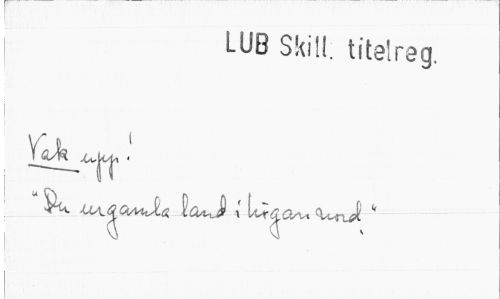 LUB Skill. titelreg.
Vak upp!
"Du urgamla land i högan nord."